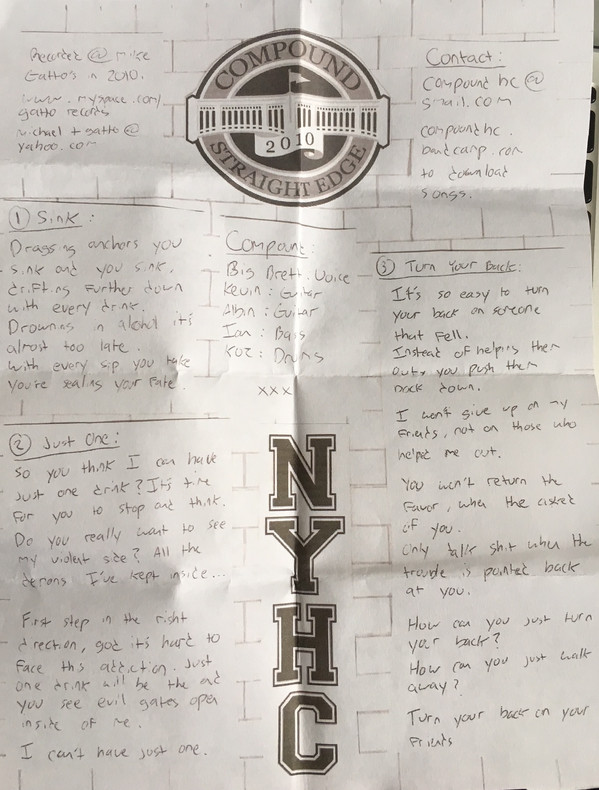 Recorded @ Mike
Gatto's in 2010.
www.myspace.com/
gatto records
michael t gatto @
yahoo.com
COMPOUND
2010
STRAIGHT EDGE
Contact:
compound hc @
gmail.com
compoundhc.
bandcamp.com
to download
songs.
① Sink:
Dragging anchors you
sink and you sink,
drifting further down
with every drink.
Drowning in alcohol it's
almost too late.
with every sip you take
you're sealing your fate.
Compound:
Big Brett: Voice
Kevin: Guitar
Albin: Guitar
Ian: Bass
Koz: Drums
xxx
NYHC
② Just One:
So you think I can have
just one drink? It's time
for you to stop and think.
Do you really want to see
my violent side? All the
demons I've kept inside...
First step in the right
direction, god it's hard to
face this addiction. Just
one drink will be the end
you see evil gates open
inside of me.
I can't have just one.
③ Turn Your Back:
It's so easy to turn
your back on someone
that fell.
Instead of helping them
out, you push them
back down.
I won't give up on my
friends, not on those who
helped me out.
You won't return the
favor, when the asked
of you.
Only talk shit when the
trouble is pointed back
at you.
How can you just turn
your back?
How can you just walk
away?
Turn your back on your
friends